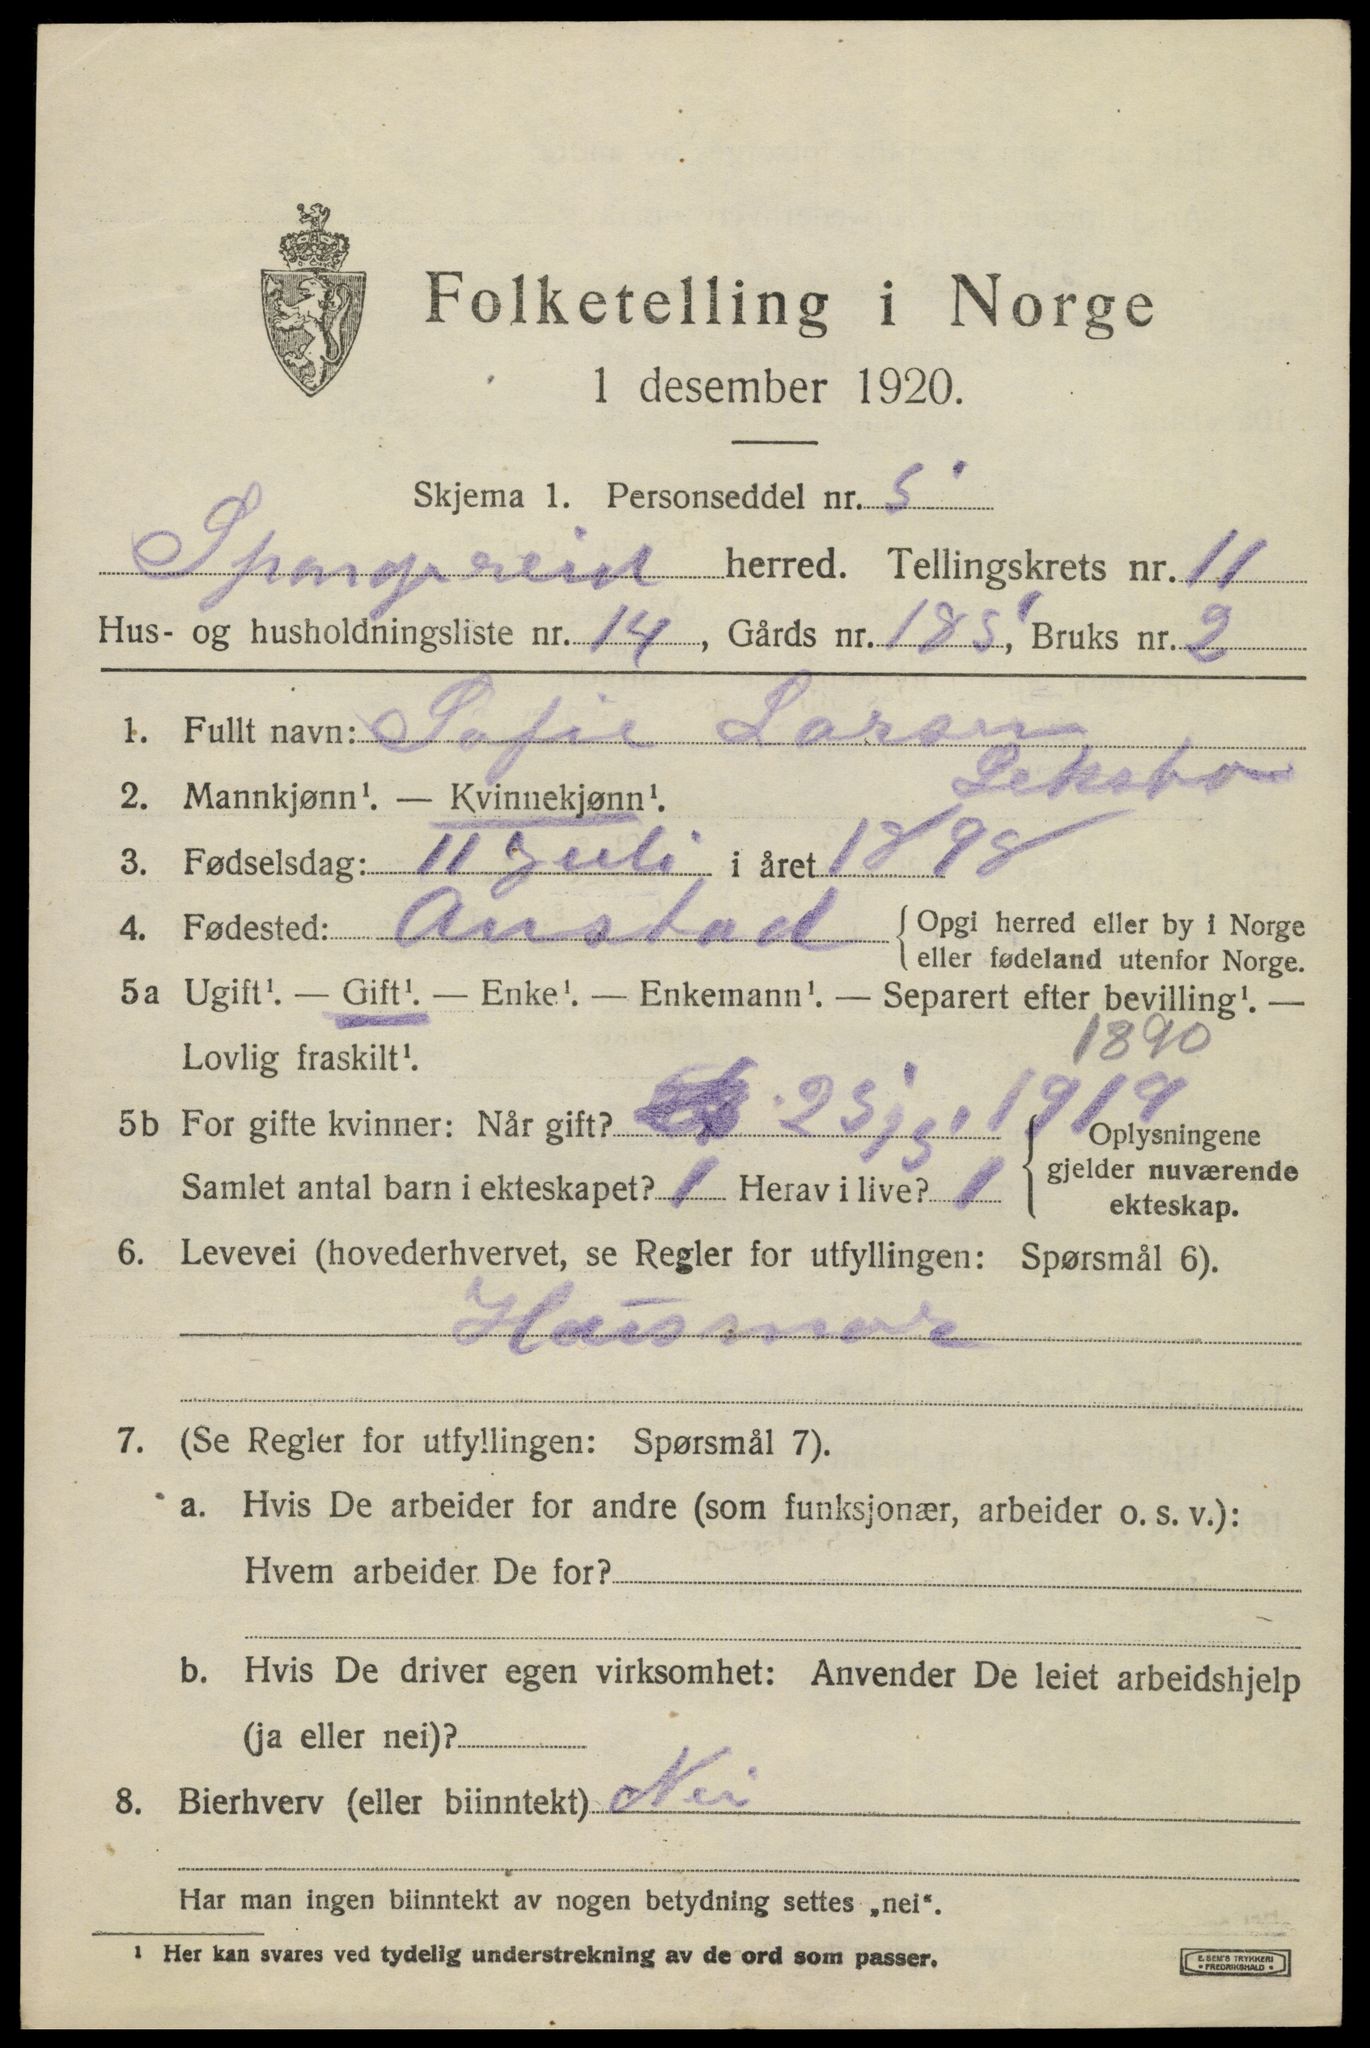 Folketelling i Norge
1 desember 1920.
Skjema 1. Personseddel nr. 5
Spangereid herred. Tellingskrets nr. 11
Hus- og husholdningsliste nr. 14, Gårds nr. 185, Bruks nr. 2
1. Fullt navn: Sofie Larsen
2. Mannkjønn¹. — Kvinnekjønn¹.
3. Fødselsdag: 11 juli i året 1898
4. Fødested: Austad { Opgi herred eller by i Norge
eller fødeland utenfor Norge.
5a Ugift¹. — Gift¹. — Enke¹. — Enkemann¹. — Separert efter bevilling¹. —
Lovlig fraskilt¹.
1890
5b For gifte kvinner: Når gift? 23/5 1919 { Oplysningene
gjelder nuværende
ekteskap.
Samlet antal barn i ekteskapet? 1 Herav i live? 1
6. Levevei (hovederhvervet, se Regler for utfyllingen: Spørsmål 6).
Husmor
7. (Se Regler for utfyllingen: Spørsmål 7).
a. Hvis De arbeider for andre (som funksjonær, arbeider o. s. v.):
Hvem arbeider De for?
b. Hvis De driver egen virksomhet: Anvender De leiet arbeidshjelp
(ja eller nei)?
8. Bierhverv (eller biinntekt) Nei
Har man ingen biinntekt av nogen betydning settes „nei“.
¹ Her kan svares ved tydelig understrekning av de ord som passer.
E. SEM'S TRYKKERI
• FREDRIKSHALD •